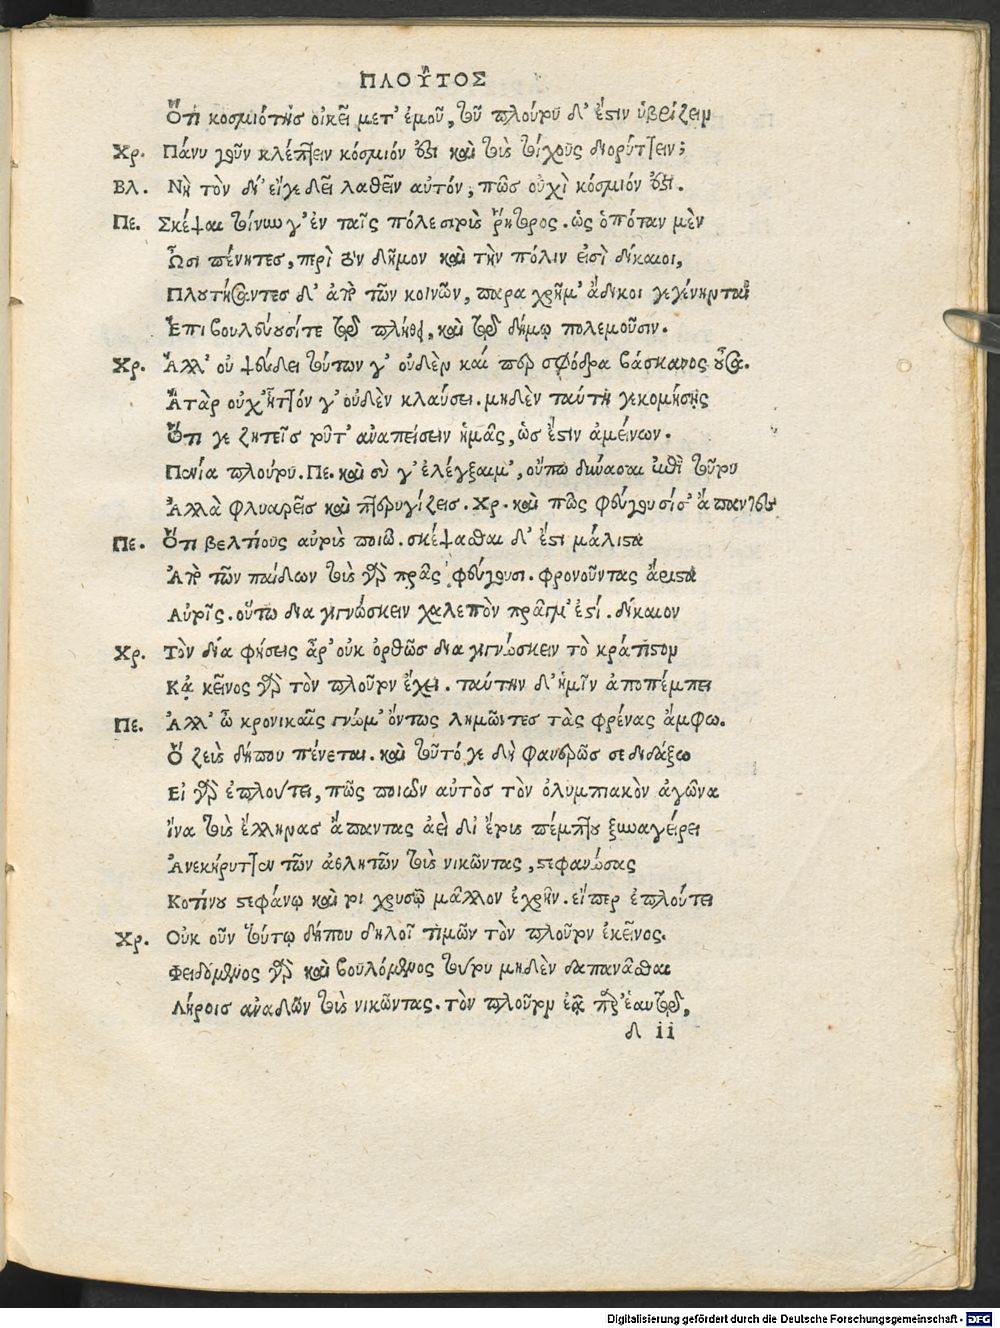 ΠΛΟΥ͂ΤΟΣ
Ὅτι κοσμιότης οἰκεῖ μετ' ἐμοῦ, τοῦ πλούτου δ' ἐστὶν ὑβρίζειν
Χρ. Πάνυ γοῦν κλέπτειν κόσμιόν ἐστι καὶ τοὺς τοίχους διορύττειν;
Βλ. Νὴ τὸν δί' εἴγε δεῖ λαθεῖν αὐτόν, πῶς οὐχὶ κόσμιόν ἐστι.
Πε. Σκέψαι τοίνυν γ' ἐν ταῖς πόλεσι τοὺς ῥήτορας. ὡς ὁπόταν μὲν
Ὦσι πένητες, περὶ τὸν δῆμον καὶ τὴν πόλιν εἰσὶ δίκαιοι,
Πλουτήσαντες δ' ἀπὸ τῶν κοινῶν, παρα χρῆμ' ἄδικοι γεγένηνται
Ἐπιβουλεύουσί τε τῷ πλήθει, καὶ τῷ δήμῳ πολεμοῦσιν.
Χρ. Ἀλλ' οὐ ψεύδει τούτων γ' οὐδὲν καί περ σφόδρα βάσκανος οὖσα.
Ἀτὰρ οὐχ' ἧττόν γ' οὐδὲν κλαύσει. μηδὲν ταύτῃ γε κομήσῃς
Ὅτι γε ζητεῖς τοῦτ' αναπείσειν ἡμᾶς, ὡς ἔστιν ἀμείνων.
Πενία πλούτου. Πε. καὶ σὺ γ' ἐλέγξαι μ', οὔπω δύνασαι περὶ τούτου
Ἀλλὰ φλυαρεῖς καὶ πτερυγίζεις. Χρ. καὶ πῶς φεύγουσί σ' ἅπαντες
Πε. Ὅτι βελτίους αὐτοὺς ποιῶ. σκέψασθαι δ' ἔστι μάλιστα
Ἀπὸ τῶν παίδων τοὺς γὰρ πατέρας φεύγουσι. φρονοῦντας ἄριστα
Αὐτοῖς. οὕτω διαγιγνώσκειν χαλεπὸν πρᾶγμ' ἐστί. δίκαιον
Χρ. Τὸν δία φήσεις ἆρ' οὐκ ὀρθῶς διαγιγνώσκειν τὸ κράτιστον
Κᾀκεῖνος γὰρ τὸν πλοῦτον ἔχει. ταύτην δ' ἡμῖν ἀποπέμπει
Πε. Ἀλλ' ὦ κρονικαῖς γνώμ' ὄντως λημῶντες τὰς φρένας ἄμφω.
Ὁ ζεὺς δήπου πένεται. καὶ τοῦτό γε δὴ φανερῶς σε διδάξω
Εἰ γὰρ ἐπλούτει, πῶς ποιῶν αὐτὸς τὸν ὀλυμπιακὸν ἀγῶνα
Ἵνα τοὺς ἕλληνας ἅπαντας ἀεὶ δι' ἔτους πέμπτου ξυναγείρει
Ἀνεκήρυττον τῶν ἀθλητῶν τοὺς νικῶντας, στεφανώσας
Κοτίνου στεφάνῳ καὶ τοι χρυσῷ μᾶλλον ἐχρῆν. εἴπερ ἐπλούτει
Χρ. Οὐκ οῦν τούτῳ δήπου δηλοῖ τιμῶν τὸν πλοῦτον ἐκεῖνος.
Φειδόμενος γὰρ καὶ βουλόμενος τούτου μηδὲν δαπανᾶσθαι
Λήροις ἀναδῶν τοὺς νικῶντας. τὸν πλοῦτον ἐᾷ παρ' ἑαυτῷ,
δ ii
Digitalisierung gefördert durch die Deutsche Forschungsgemeinschaft - DFG